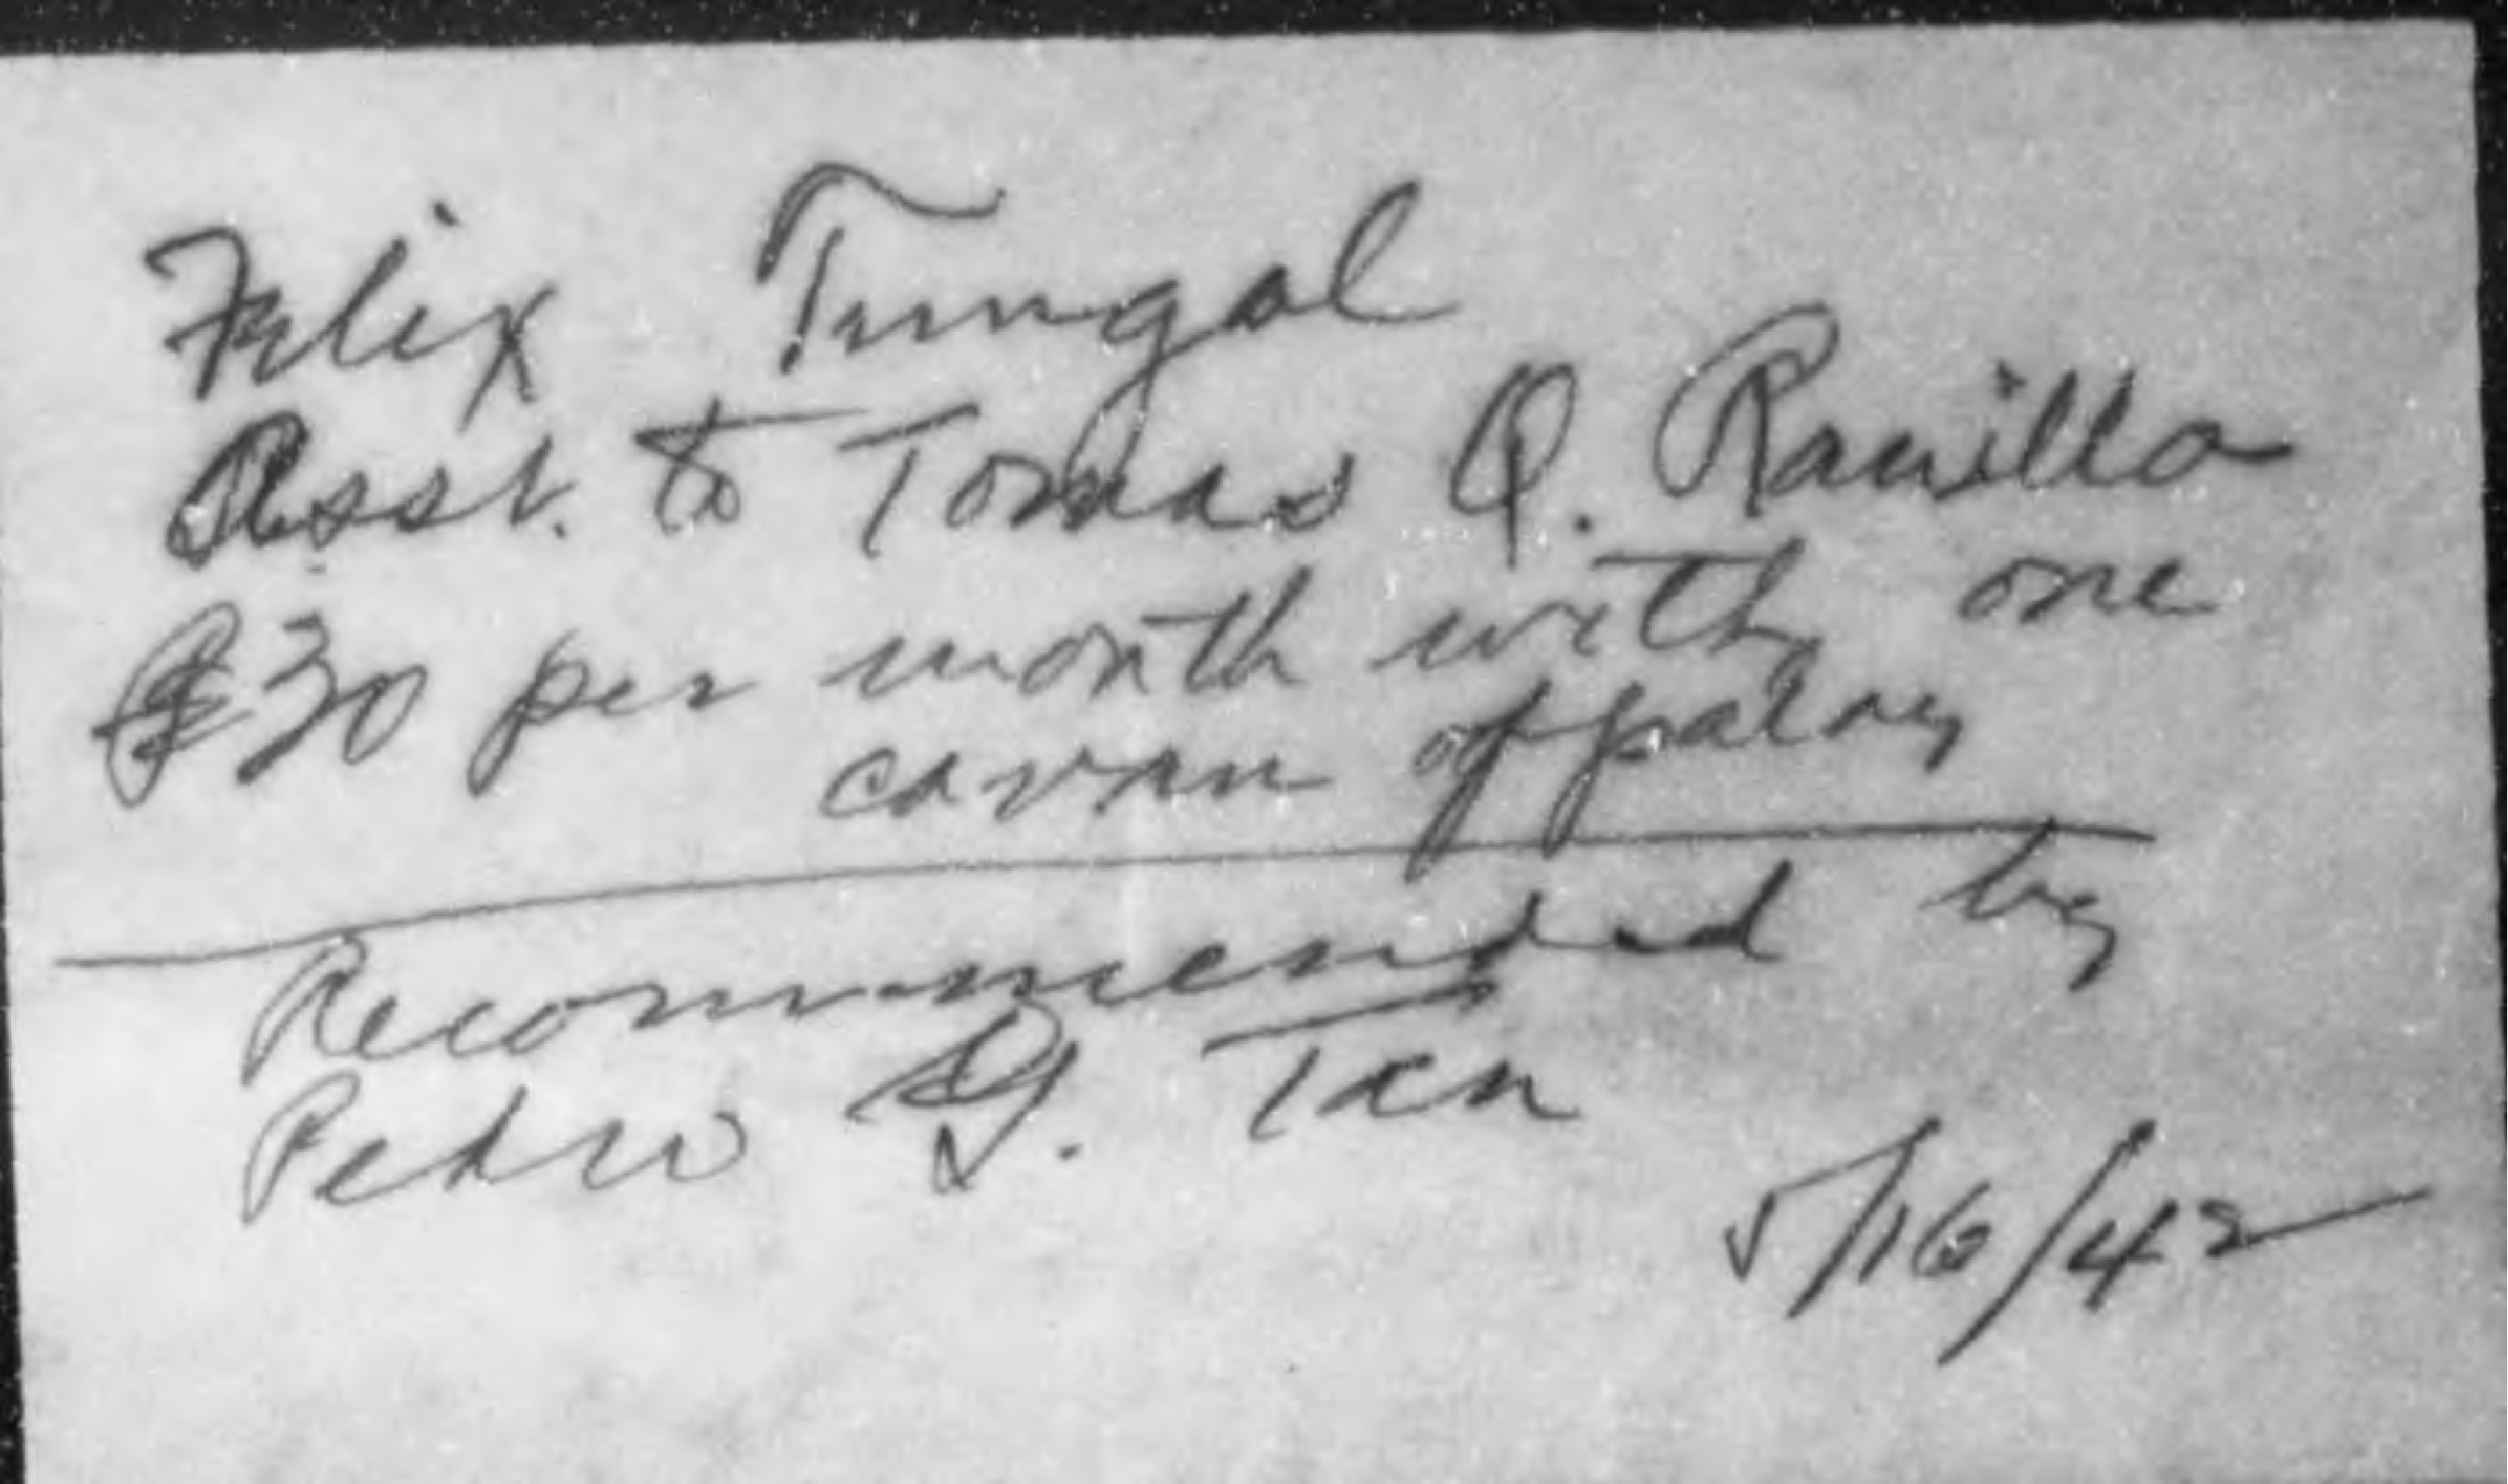 Felix Tungal
Asst. to Tomas Q. Ravilla
₱30 per month with one
cavan of palay
Recommended by
Pedro Tan
5/16/42